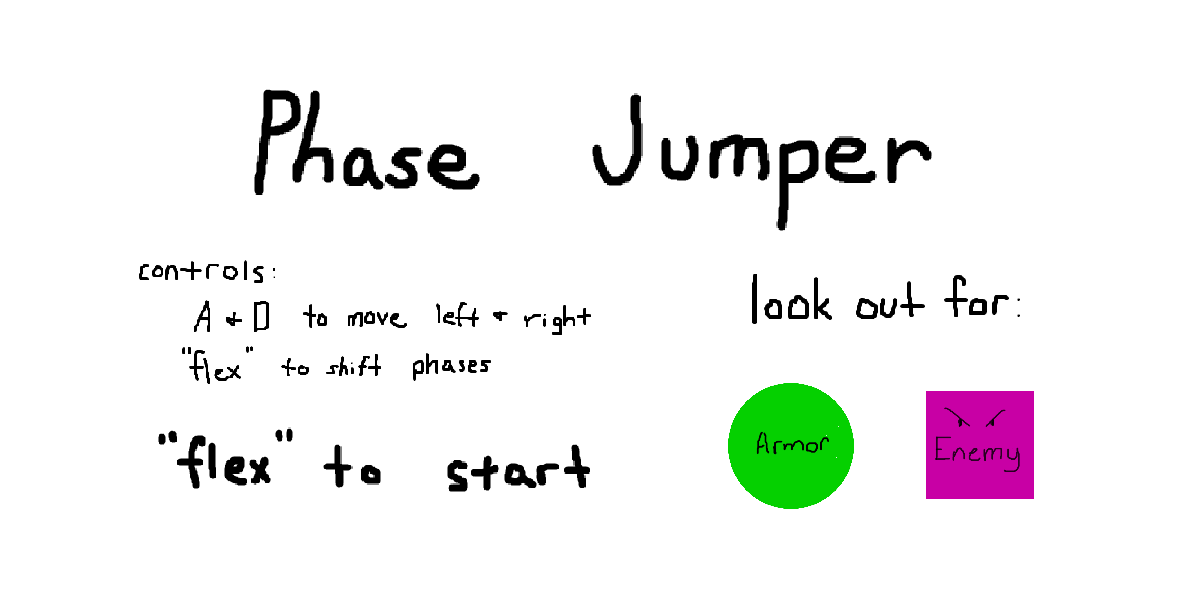 Phase Jumper
controls:
A + D to move left + right
"flex" to shift phases
"flex" to start
look out for:
Armor
Enemy